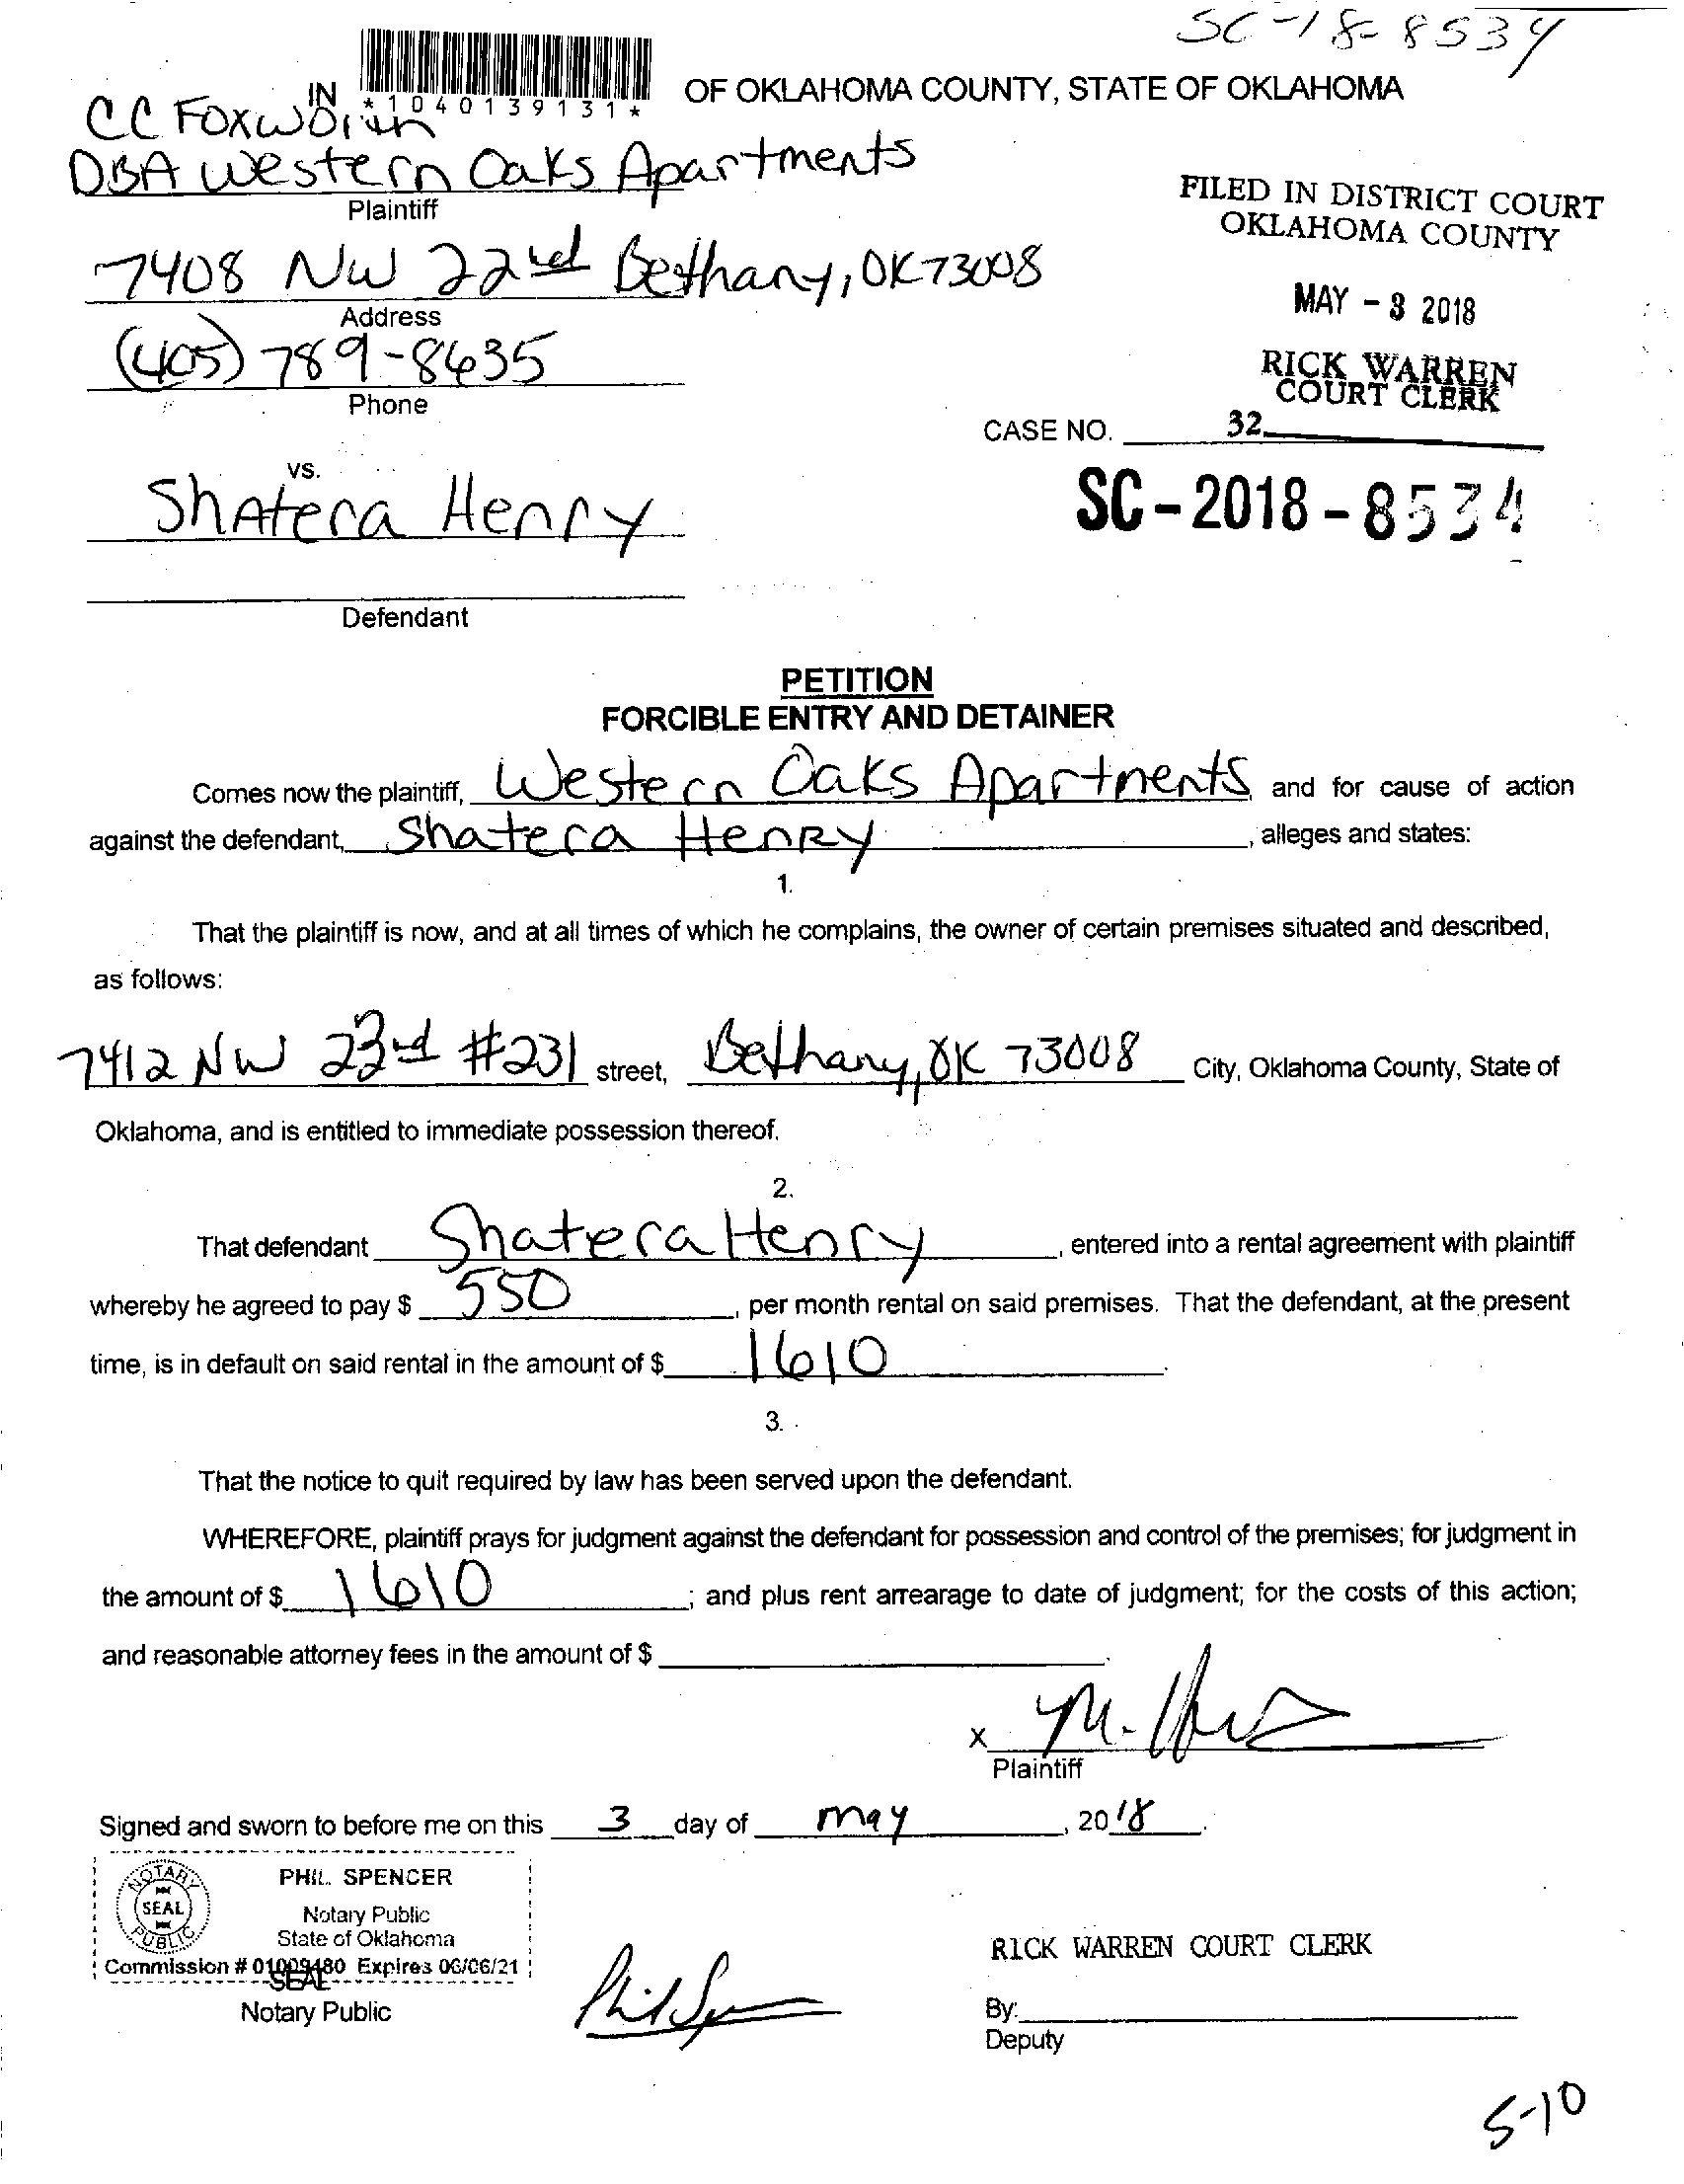 SC-18-8534
IN
*1040139131*
OF OKLAHOMA COUNTY, STATE OF OKLAHOMA
CC Foxworth
DBA Western Oaks Apartments
Plaintiff
FILED IN DISTRICT COURT
OKLAHOMA COUNTY
7408 NW 22nd Bethany, OK 73008
Address
MAY - 3 2018
(405) 789-8635
Phone
RICK WARREN
COURT CLERK
CASE NO. 32
vs.
SC-2018-8534
Shatera Henry
Defendant
PETITION
FORCIBLE ENTRY AND DETAINER
Comes now the plaintiff, Western Oaks Apartments and for cause of action
against the defendant, Shatera Henry, alleges and states:
1.
That the plaintiff is now, and at all times of which he complains, the owner of certain premises situated and described,
as follows:
7412 NW 23rd #231 street, Bethany, OK 73008 City, Oklahoma County, State of
Oklahoma, and is entitled to immediate possession thereof.
2.
That defendant Shatera Henry, entered into a rental agreement with plaintiff
whereby he agreed to pay $ 550, per month rental on said premises. That the defendant, at the present
time, is in default on said rental in the amount of $ 1610.
3.
That the notice to quit required by law has been served upon the defendant.
WHEREFORE, plaintiff prays for judgment against the defendant for possession and control of the premises; for judgment in
the amount of $ 1610; and plus rent arrearage to date of judgment; for the costs of this action;
and reasonable attorney fees in the amount of $ .
x M.
Plaintiff
Signed and sworn to before me on this 3 day of may, 2018.
NOTARY SEAL PUBLIC
PHIL SPENCER
Notary Public
State of Oklahoma
Commission # 01009480 Expires 06/06/21
SEAL
Notary Public
Phil Spencer
RICK WARREN COURT CLERK
By:
Deputy
5-10